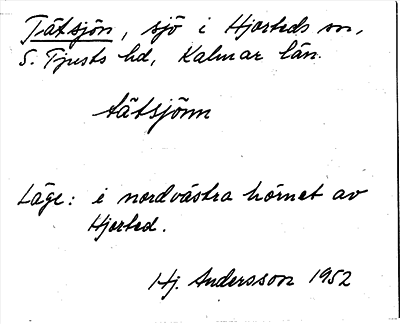 Tätsjön, sjö i Hjorteds sn,
S. Tjusts hd, Kalmar län.
tätsjönn
Läge: i nordvästra hörnet av
Hjorted.
Hj. Andersson 1952